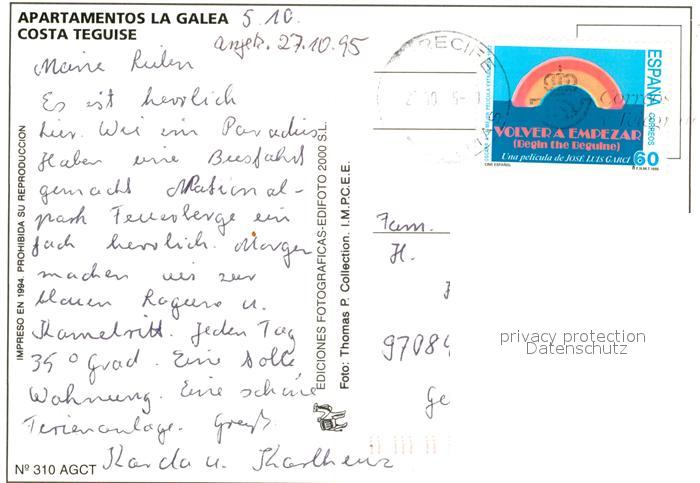 APARTAMENTOS LA GALEA
COSTA TEGUISE
5.10.
27.10.95
Meine Lieben
Es ist herrlich
hier. Wie im Paradies
Haben eine Busfahrt
gemacht National-
park Feuerberge ein
fach herrlich. Morgen
machen wir zur
blauen Lagune u.
Kamelritt. Jeden Tag
35° Grad. Eine tolle
Wohnung. Eine schöne
Ferienanlage.
u. Karlheinz
Nº 310 AGCT
IMPRESO EN 1994. PROHIBIDA SU REPRODUCCION
EDICIONES FOTOGRAFICAS-EDIFOTO 2000 S.L.
Foto: Thomas P. Collection. I.M.P.C.E.E.
RECIFE
ESPAÑA
CORREOS
VOLVER A EMPEZAR
(Begin the Beguine)
Una película de JOSÉ LUIS GARCI
60
CINE ESPAÑOL
Correos
Fam.
H.
97084
Ge
privacy protection
Datenschutz